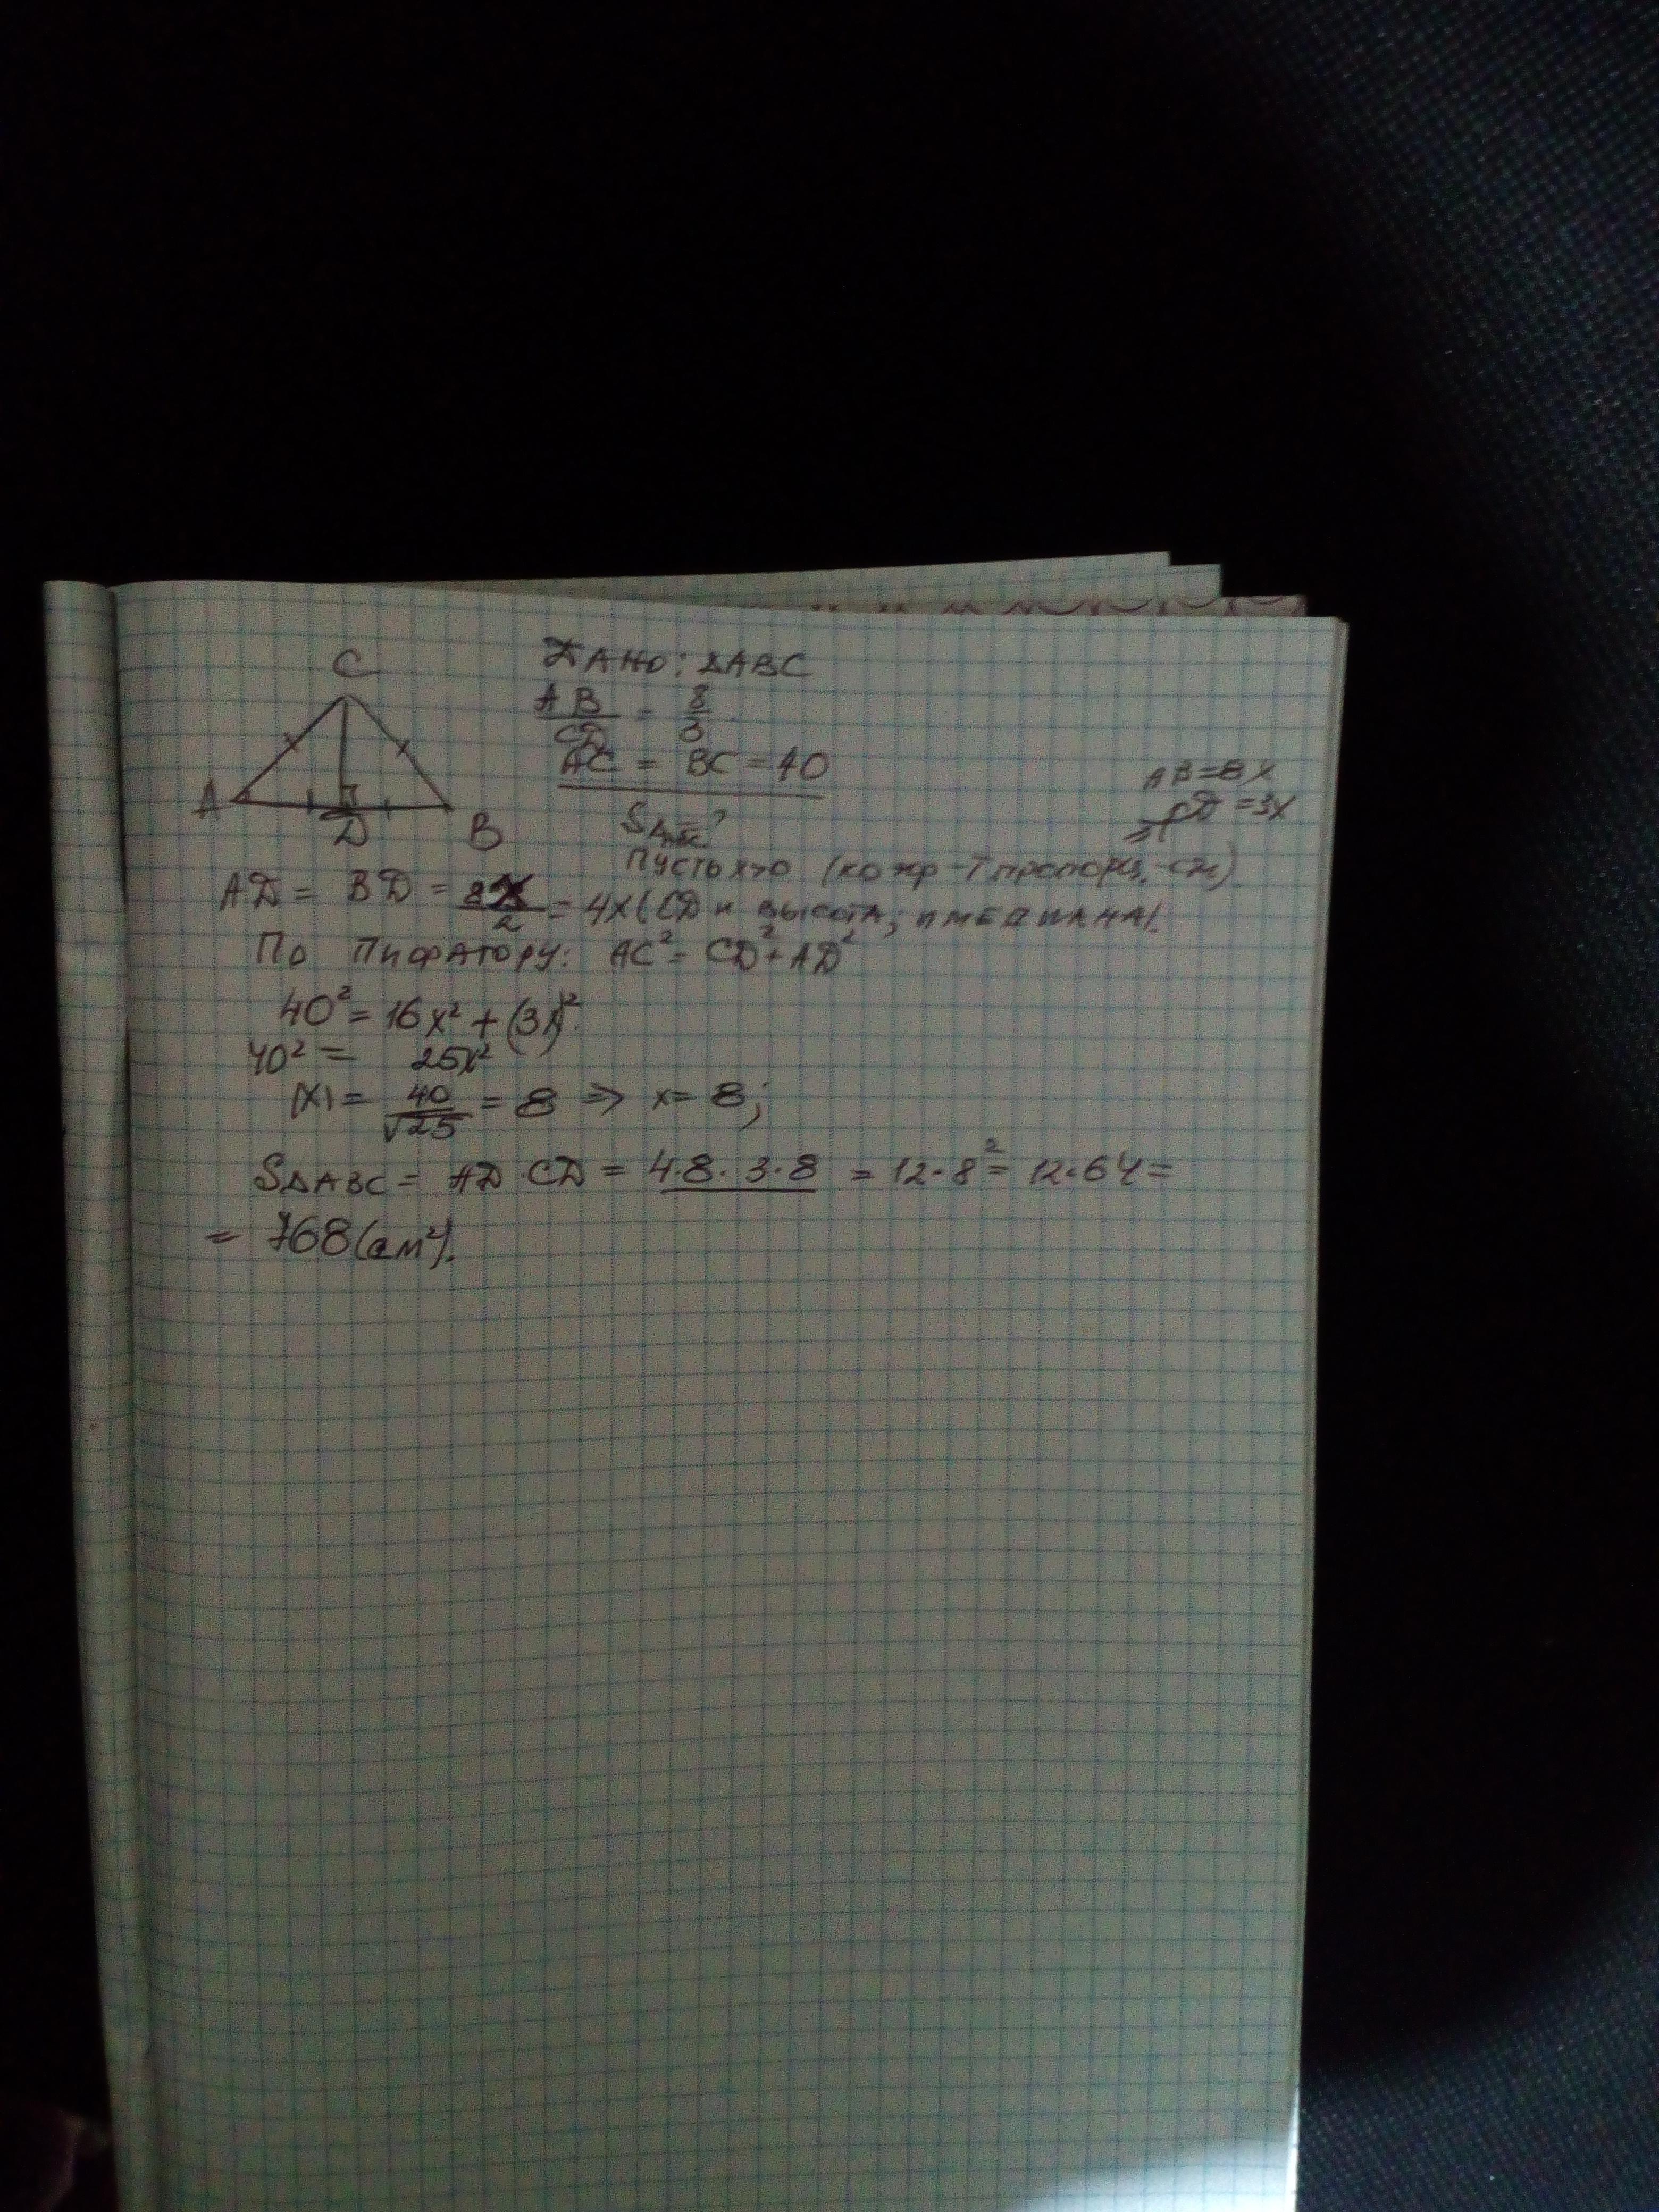 C
A
D
B
Дано: ΔABC
AB/CD = 8/3
AC = BC = 40
SΔABC = ?
AB = 8x
=> CD = 3x
Пусть x>0 (коэф-т пропорц. - см)
AD = BD = 8x/2 = 4x (CD и высота, и медиана).
По Пифагору: AC² = CD² + AD²
40² = 16x² + (3x)².
40² = 25x²
|x| = 40/√25 = 8 => x = 8;
SΔABC = AD · CD = 4·8·3·8 = 12·8² = 12·64 =
= 768 (см²).